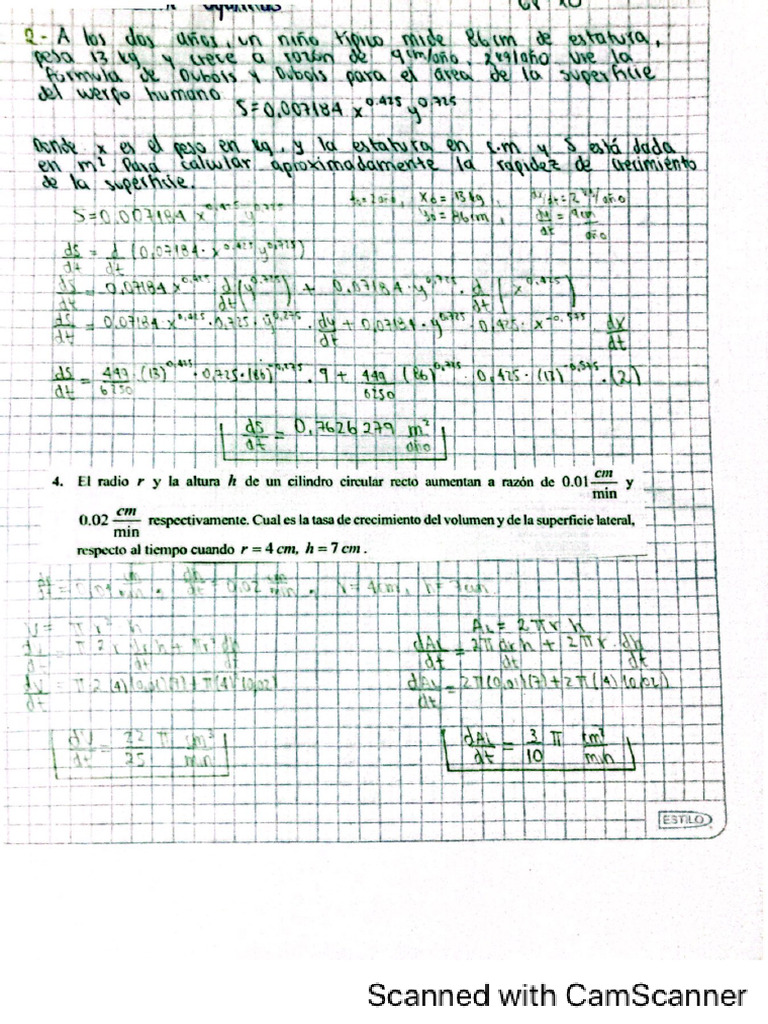 2.- A los dos años, un niño típico mide 86 cm de estatura,
pesa 13 kg y crece a razón de 9 cm/año, 2 kg/año Use la
formula de Dubois y Dubois para el área de la superficie
del cuerpo humano
S=0.007184 x^0.425 y^0.725
Donde x es el peso en kg, y la estatura en cm y S está dada
en m² Para calcular aproximadamente la rapidez de crecimiento
de la superficie.
t₀=2año, x₀=13kg, dx/dt=2 kg/año
S=0.007184 x^0.425 y^0.725 y₀=86cm, dy/dt = 9cm/año
ds/dt = d/dt (0,07184·x^0.425 y^0.725)
ds/dt = 0,07184 x^0.425 d/dt (y^0.725) + 0,07184·y^0.725· d/dt (x^0.425)
ds/dt = 0,07184·x^0.425·0,725·y^0.275· dy/dt + 0,07184·y^0.725·0,425·x^-0.575· dx/dt
ds/dt = 449/6250·(13)^0.425·0,725·(86)^-0.275·9 + 449/6250 (86)^0.725·0,425·(13)^-0.575·(2)
ds/dt = 0,7626279 m²/año
4. El radio r y la altura h de un cilindro circular recto aumentan a razón de 0.01 cm/min y
0.02 cm/min respectivamente. Cual es la tasa de crecimiento del volumen y de la superficie lateral,
respecto al tiempo cuando r = 4 cm, h = 7 cm.
dr/dt = 0,01 cm/min, dh/dt = 0,02 cm/min, r=4cm, h=7cm
V = π r² h
dV/dt = π 2r dr/dt h + πr² dh/dt
dV/dt = π·2(4)(0,01)(7)+π(4)²(0,02)
dV/dt = 22/25 π cm³/min
AL = 2πr h
dAL/dt = 2π dr/dt h + 2πr· dh/dt
dAL/dt = 2π(0,01)(7)+2π(4)(0,02)
dAL/dt = 3/10 π cm²/min
ESTILO
Scanned with CamScanner